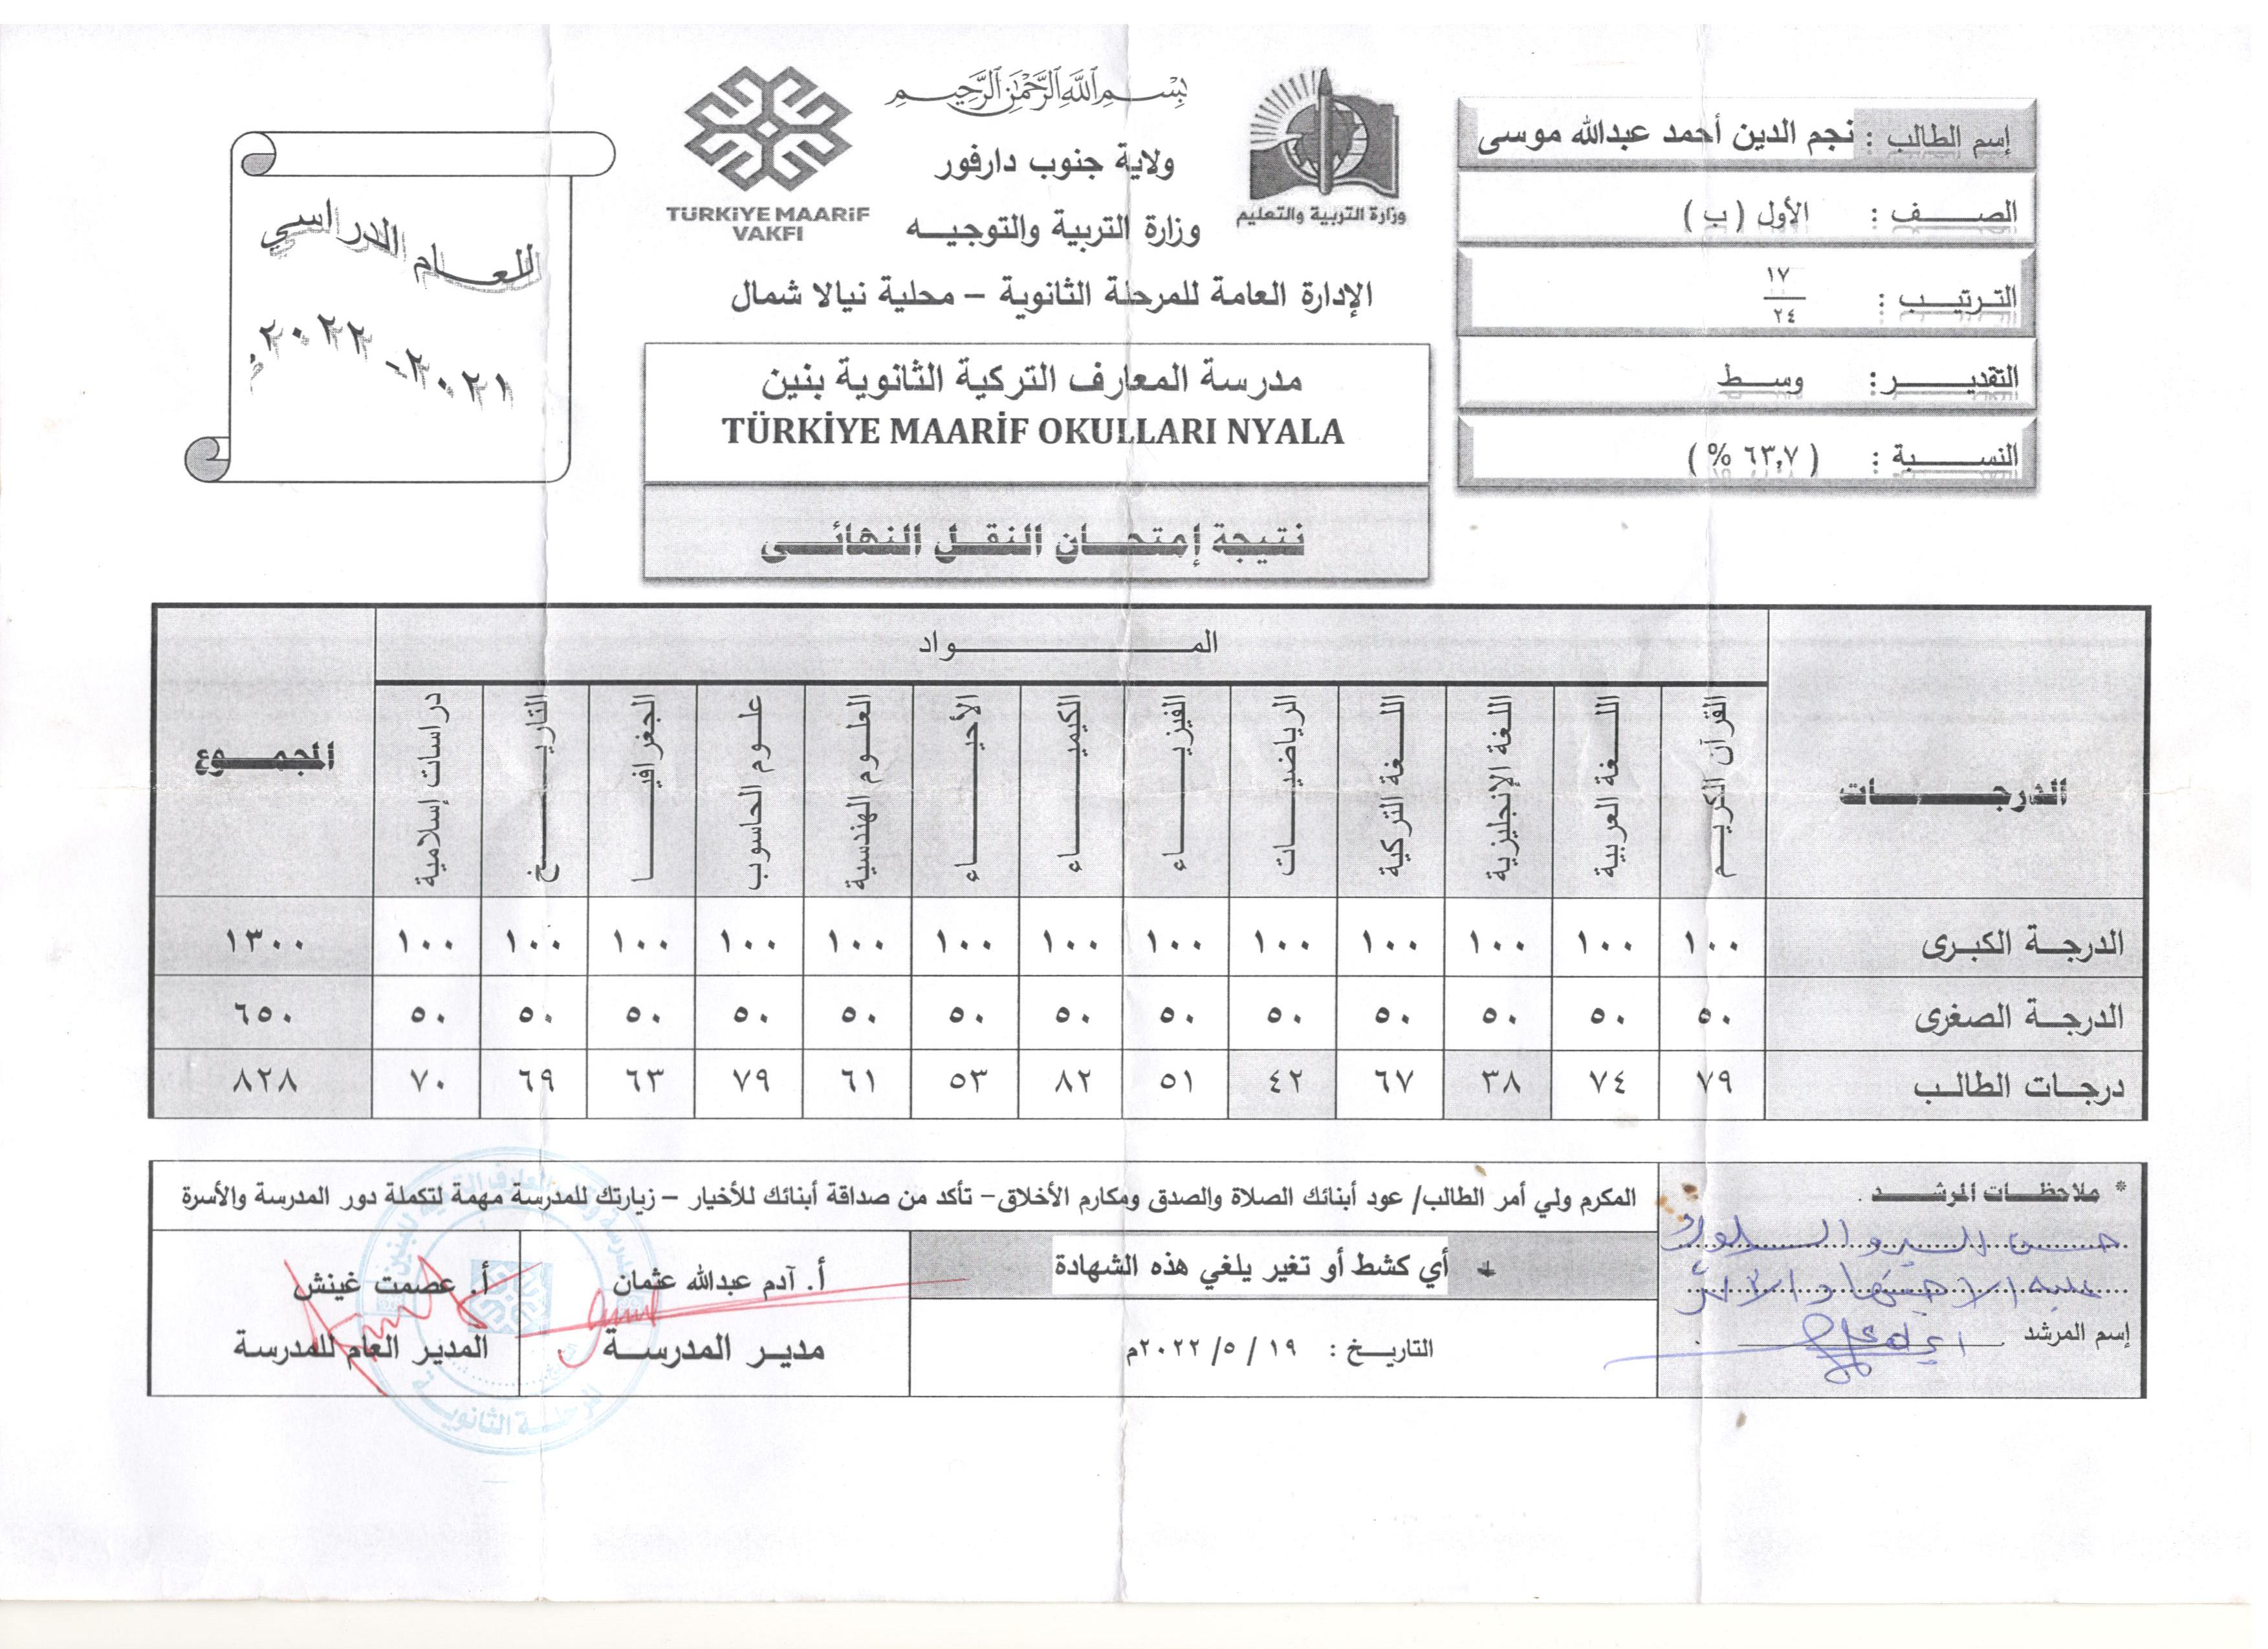 بسم الله الرحمن الرحيم
ولاية جنوب دارفور
وزارة التربية والتوجيـــه
الإدارة العامة للمرحلة الثانوية – محلية نيالا شمال
وزارة التربية والتعليم
TÜRKİYE MAARİF
VAKFI
إسم الطالب : نجم الدين أحمد عبدالله موسى
الصــــف : الأول ( ب )
الترتيــب : ١٧
٢٤
التقديــــر : وســط
النســــبة : ( ٦٣,٧ % )
للعـــام الدراسي
٢٠٢١-٢٠٢٢م
مدرسة المعارف التركية الثانوية بنين
TÜRKİYE MAARİF OKULLARI NYALA
نتيجة إمتحـــان النقــل النهائـــى
الدرجـــــــات المـــــــــــواد المجمـــوع
القرآن الكريــم اللــــغة العربية اللــغة الإنجليزية اللــــغة التركية الرياضيـــــات الفيزيـــــــاء الكيميـــــــاء الأحيـــــــاء العلــوم الهندسية علـــوم الحاسوب الجغرافيـــــــا التاريـــــــخ دراسات إسلامية
الدرجــة الكبــرى ١٠٠ ١٠٠ ١٠٠ ١٠٠ ١٠٠ ١٠٠ ١٠٠ ١٠٠ ١٠٠ ١٠٠ ١٠٠ ١٠٠ ١٠٠ ١٣٠٠
الدرجــة الصغرى ٥٠ ٥٠ ٥٠ ٥٠ ٥٠ ٥٠ ٥٠ ٥٠ ٥٠ ٥٠ ٥٠ ٥٠ ٥٠ ٦٥٠
درجــات الطالــب ٧٩ ٧٤ ٣٨ ٦٧ ٤٢ ٥١ ٨٢ ٥٣ ٦١ ٧٩ ٦٣ ٦٩ ٧٠ ٨٢٨
* ملاحظــات المرشــــد .
حسن السير والسلوك
عليه الاجتهاد
إسم المرشد
المكرم ولي أمر الطالب/ عود أبنائك الصلاة والصدق ومكارم الأخلاق– تأكد من صداقة أبنائك للأخيار – زيارتك للمدرسة مهمة لتكملة دور المدرسة والأسرة
أي كشط أو تغير يلغي هذه الشهادة
التاريــخ : ١٩ / ٥ /٢٠٢٢م
أ. آدم عبدالله عثمان
مديــر المدرســـة
أ. عصمت غينش
المدير العام للمدرسة
المرحلــة الثانويــة